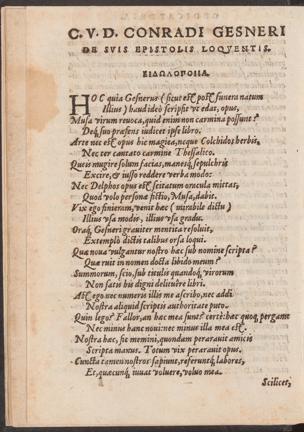 C. V. D. CONRADI GESNERI
DE SVIS EPISTOLIS LOQVENTIS.
ΕΙΔΩΛΟΠΟΙΙΑ.
HOC quia Gesnerus (sicut est post funera natum
Illius) haud dido scripsit ut edat, opus,
Musa virum revoca, quid enim non carmina possunt?
Deq́; suo præsens iudicet ipse libro.
Arte nec est opus hic magica, neque Colchidos herbis,
Nec ter cantato carmine Thessalico,
Queis mugire solum facias, manesq́; sepulchris
Excire, & iusso reddere verba modo:
Nec Delphos opus est scitatum oracula mittas,
Quod volo persona fictio, Musa, dabit.
Vix ego finieram, venit hæc (mirabile dictu)
Illius vsa modis, illius vsa gradu.
Oraq́; Gesneri grauiter mentita resoluit,
Extemplò dictis talibus orsa loqui.
Qua noua vulgantur nostro hæc sub nomine scripta?
Quæ ruit in nomen docta libido meum?
Summorum, scio, sub titulis quandoq́; virorum
Non satis bis digni delituêre libri.
Ast ego nec numeris illis me ascribo, nec addi
Nostra aliquid scriptis authoritate puto.
Quin lego? Fallor, an hæc mea sunt? certè: hæc quoq́; pergamt
Nec minus hanc noui: nec minus illa mea est.
Nostra hæc, sic memini, quondam perarauit amicis
Scripta manus. Totum vix perarauit opus.
Cuncta tamen nostros sapiunt, referuntq́; labores,
Et, quæcunq́; iuuat voluere, voluo mea.
Scilicet,